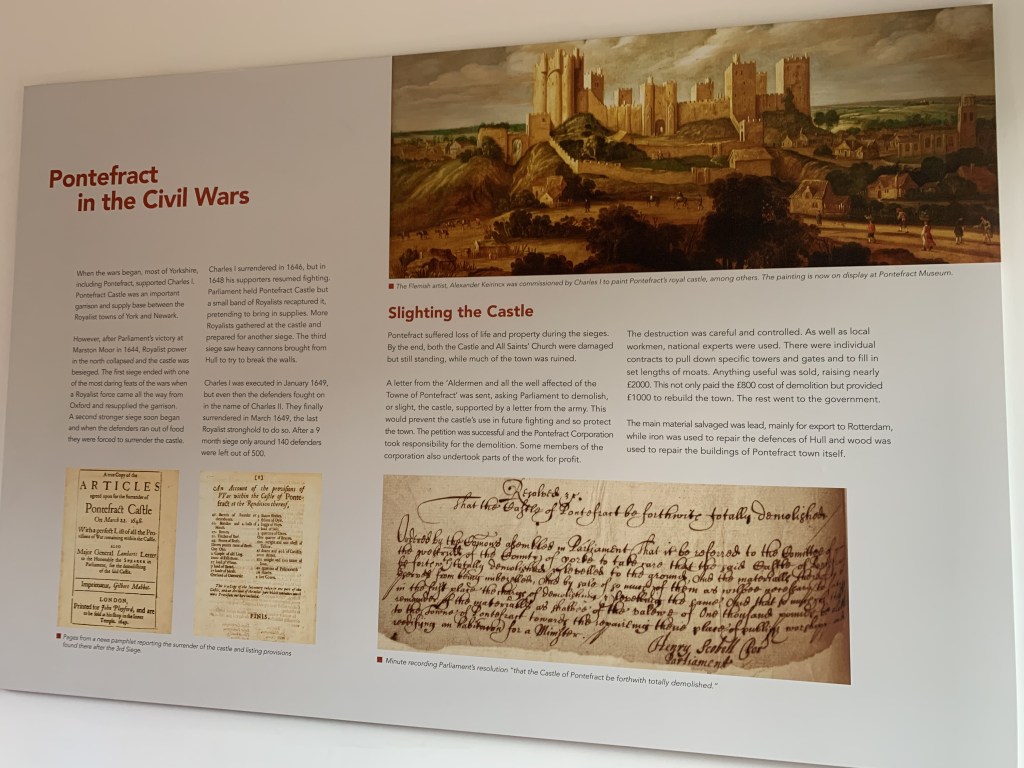 Pontefract
in the Civil Wars
When the wars began, most of Yorkshire,
including Pontefract, supported Charles I.
Pontefract Castle was an important
garrison and supply base between the
Royalist towns of York and Newark.
However, after Parliament's victory at
Marston Moor in 1644, Royalist power
in the north collapsed and the castle was
besieged. The first siege ended with one
of the most daring feats of the wars when
a Royalist force came all the way from
Oxford and resupplied the garrison.
A second stronger siege soon began
and when the defenders ran out of food
they were forced to surrender the castle.
Charles I surrendered in 1646, but in
1648 his supporters resumed fighting.
Parliament held Pontefract Castle but
a small band of Royalists recaptured it,
pretending to bring in supplies. More
Royalists gathered at the castle and
prepared for another siege. The third
siege saw heavy cannons brought from
Hull to try to break the walls.
Charles I was executed in January 1649,
but even then the defenders fought on
in the name of Charles II. They finally
surrendered in March 1649, the last
Royalist stronghold to do so. After a 9
month siege only around 140 defenders
were left out of 500.
A true Copy of the
ARTICLES
agreed upon for the surrender of
Pontefract Castle
On March 22. 1648.
Major General Lamberts Letter
Imprimatur, Gilbert Mabbot.
LONDON,
Printed for John Playford, and are
Temple. 1649.
An Account of the provisions of
War within the Castle of Ponte-
fract at the Rendition thereof,
FINIS.
Pages from a news pamphlet reporting the surrender of the castle and listing provisions
found there after the 3rd Siege.
The Flemish artist, Alexander Keirincx was commissioned by Charles I to paint Pontefract's royal castle, among others. The painting is now on display at Pontefract Museum.
Slighting the Castle
Pontefract suffered loss of life and property during the sieges.
By the end, both the Castle and All Saints' Church were damaged
but still standing, while much of the town was ruined.
A letter from the 'Aldermen and all the well affected of the
Towne of Pontefract' was sent, asking Parliament to demolish,
or slight, the castle, supported by a letter from the army. This
would prevent the castle's use in future fighting and so protect
the town. The petition was successful and the Pontefract Corporation
took responsibility for the demolition. Some members of the
corporation also undertook parts of the work for profit.
The destruction was careful and controlled. As well as local
workmen, national experts were used. There were individual
contracts to pull down specific towers and gates and to fill in
set lengths of moats. Anything useful was sold, raising nearly
£2000. This not only paid the £800 cost of demolition but provided
£1000 to rebuild the town. The rest went to the government.
The main material salvaged was lead, mainly for export to Rotterdam,
while iron was used to repair the defences of Hull and wood was
used to repair the buildings of Pontefract town itself.
Resolved
That the Castle of Pontefract be forthwith totally demolished
Ordered by the Commons assembled in Parliament That it be referred to the Committee of
the County of Yorke to take care that the said Castle of
be forthwith totally demolished & levelled to the ground, And the materialls
from being imbezelled, And by sale of so much of them as
in the first place the charge of demolishing
of the materialls as shallbe of the valew of One thousand pounds
to the Towne of Pontefract towards the repairing theire place of publique worship
an habitacon for a Minister.
Henry Scobell Cler
Parliament
Minute recording Parliament's resolution "that the Castle of Pontefract be forthwith totally demolished."